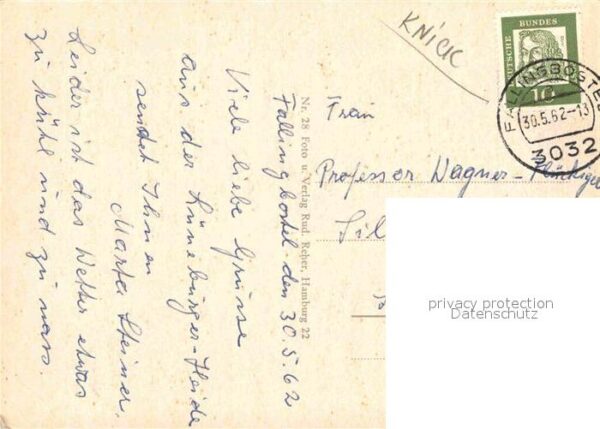 KNICK
DEUTSCHE BUNDES
10
FALLINGBOSTEL
30.5.62-13
3032
Frau
Professor Wagner-
Sil
Nr. 28 Foto u. Verlag Rud. Reher, Hamburg 22
Fallingbostel - den 30.5.62
Viele liebe Grüsse
aus der Lüneburger-Heide
sendet Ihnen
Marta Steiner.
Leider ist das Wetter etwas
zu kühl und zu nass.
privacy protection
Datenschutz